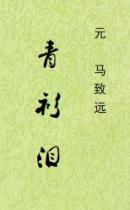 元 马致远
青衫泪